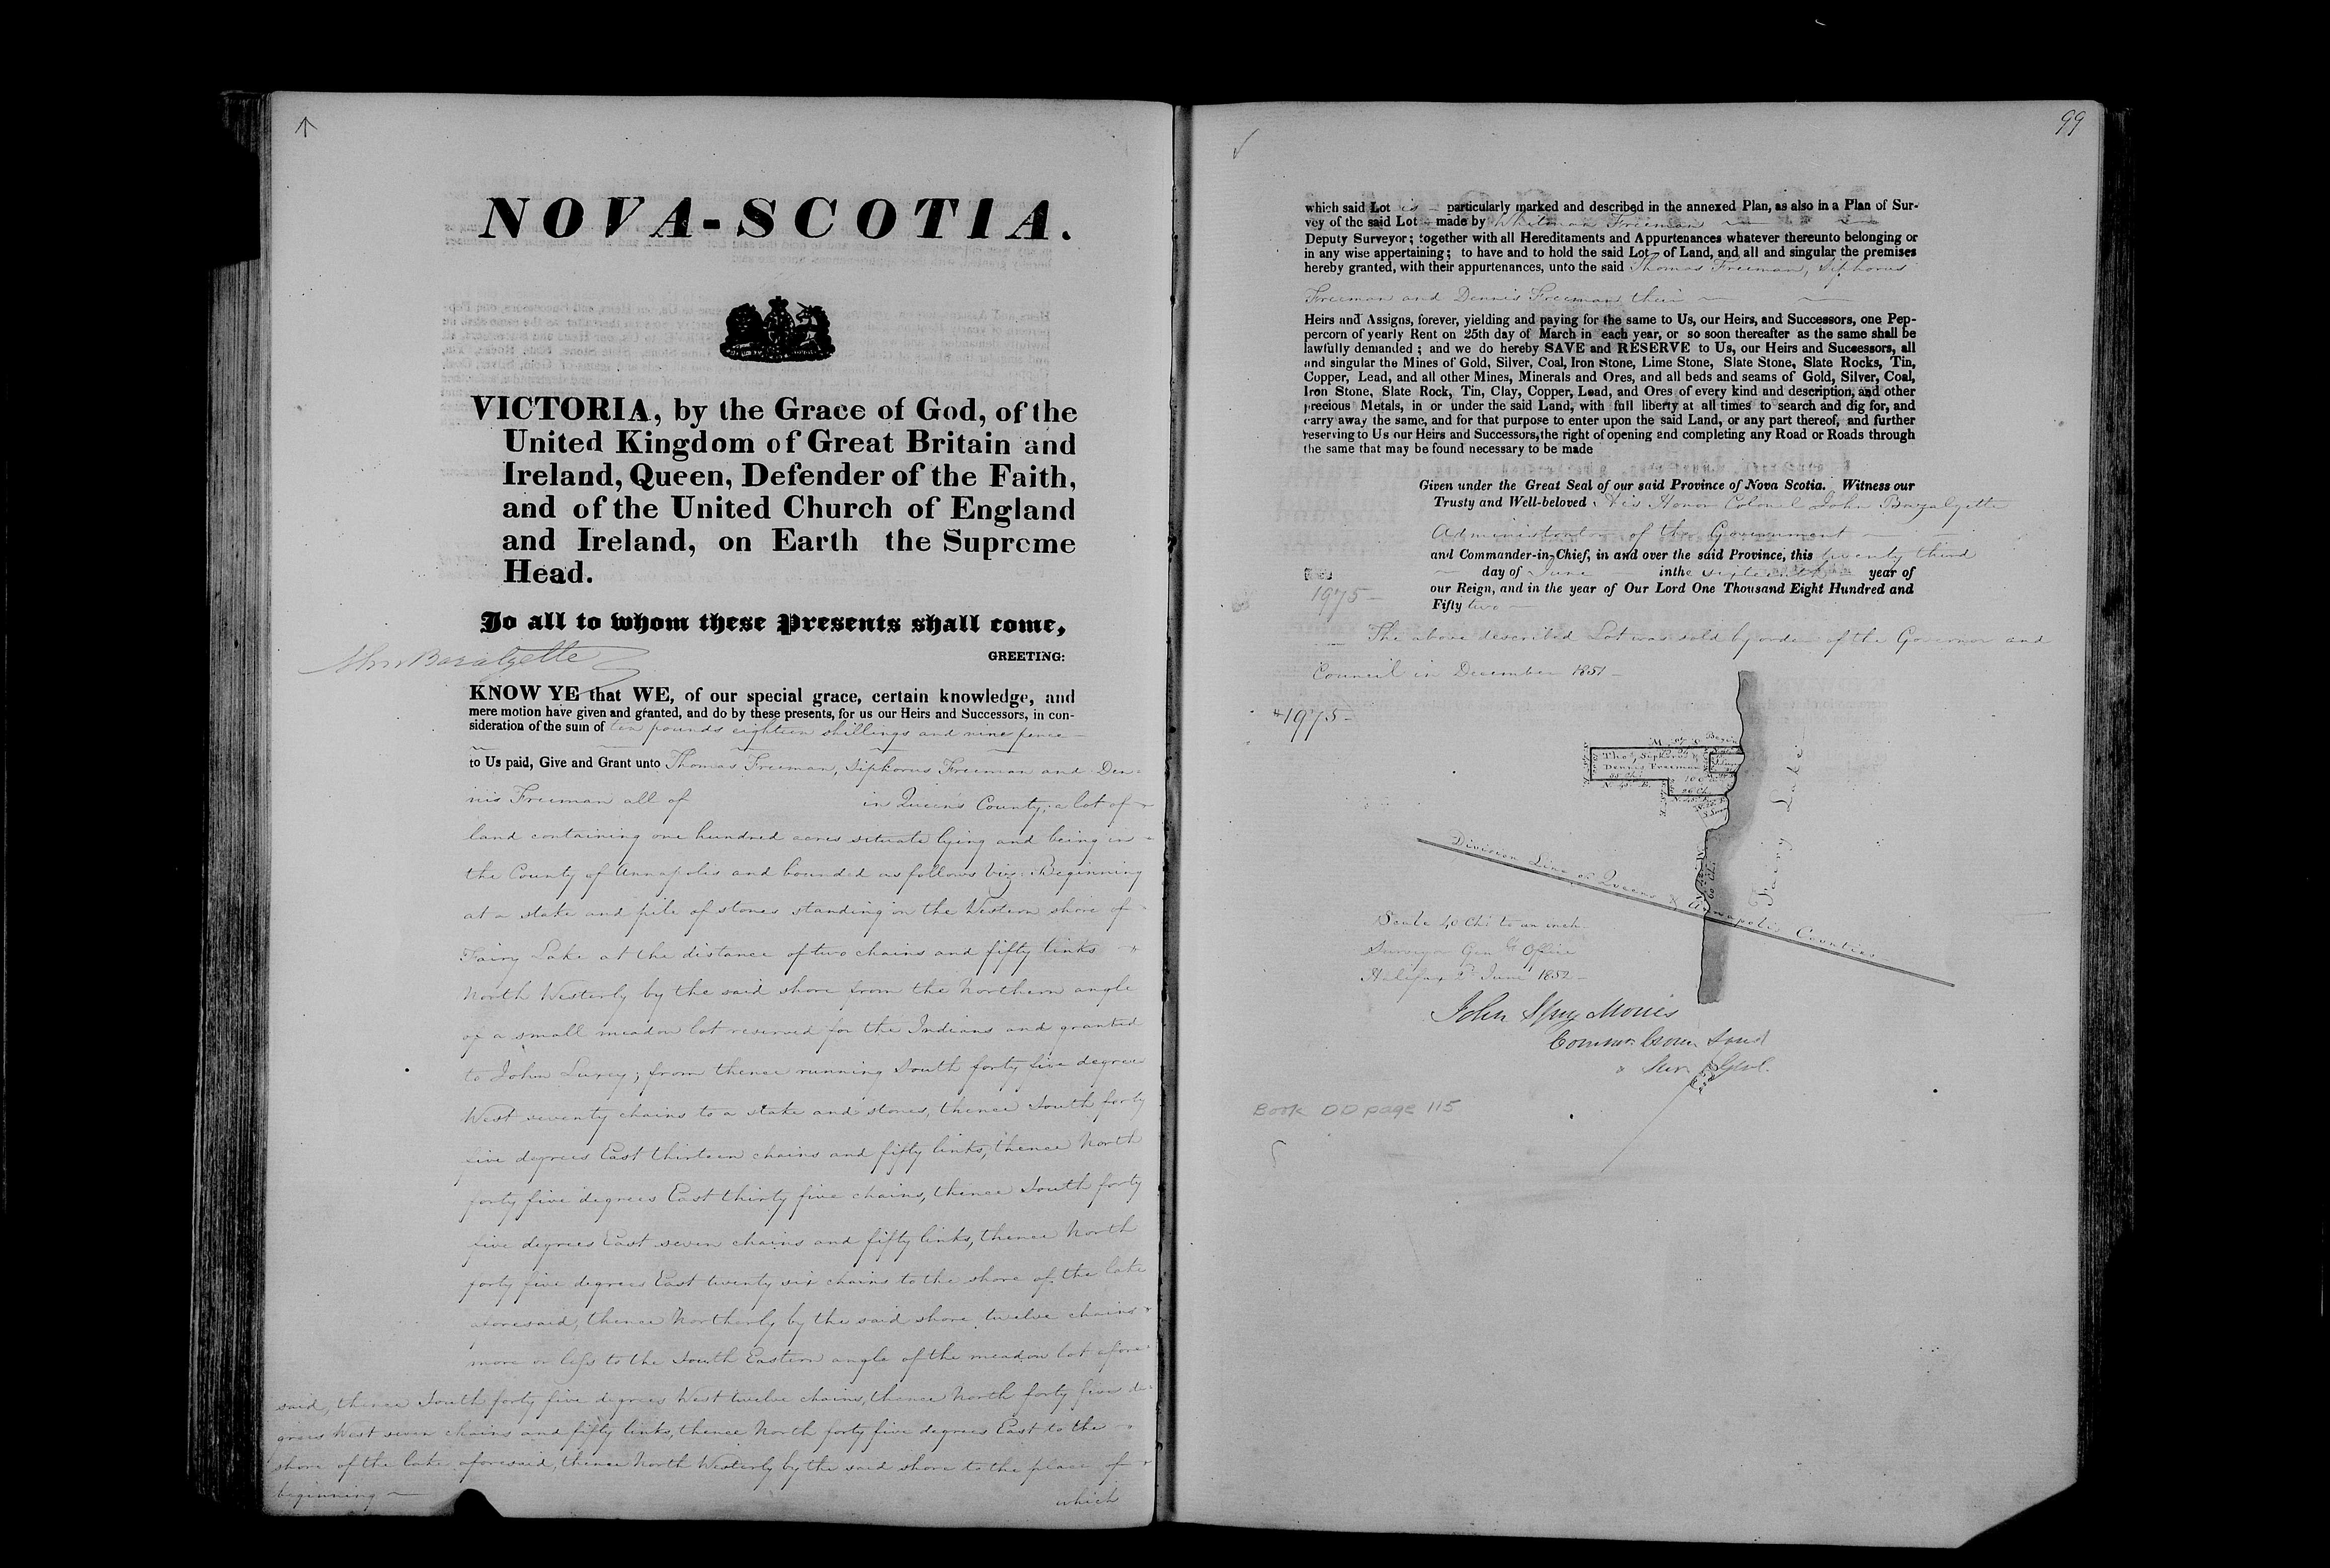 NOVA-SCOTIA.
VICTORIA, by the Grace of God, of the
United Kingdom of Great Britain and
Ireland, Queen, Defender of the Faith,
and of the United Church of England
and Ireland, on Earth the Supreme
Head.
To all to whom these Presents shall come,
John Bazalgette
GREETING:
KNOW YE that WE, of our special grace, certain knowledge, and
mere motion have given and granted, and do by these presents, for us our Heirs and Successors, in con-
sideration of the sum of ten pounds eighteen shillings and nine pence
to Us paid, Give and Grant unto Thomas Freeman, Siphorus Freeman and Den-
nis Freeman all of in Queens County, a lot of
land containing one hundred acres situate lying and being in
the County of Annapolis and bounded as follows viz: Beginning
at a stake and pile of stones standing on the Western shore of
Fairy Lake at the distance of two chains and fifty links
North Westerly by the said shore from the Northern angle
of a small meadow lot reserved for the Indians and granted
to John Luxey; from thence running South forty five degrees
West seventy chains to a stake and stones, thence South forty
five degrees East thirteen chains and fifty links, thence North
forty five degrees East thirty five chains, thence South forty
five degrees East seven chains and fifty links, thence North
forty five degrees East twenty six chains to the shore of the lake
aforesaid, thence Northerly by the said shore twelve chains
more or less to the South Eastern angle of the meadow lot afore-
said, thence South forty five degrees West twelve chains, thence North forty five de-
grees West seven chains and fifty links, thence North forty five degrees East to the
shore of the lake aforesaid, thence North Westerly by the said shore to the place of
beginning
which
99
which said Lot is particularly marked and described in the annexed Plan, as also in a Plan of Sur-
vey of the said Lot made by Whitman Freeman
Deputy Surveyor; together with all Hereditaments and Appurtenances whatever thereunto belonging or
in any wise appertaining; to have and to hold the said Lot of Land, and all and singular the premises
hereby granted, with their appurtenances, unto the said Thomas Freeman, Siphorus
Freeman and Dennis Freeman their
Heirs and Assigns, forever, yielding and paying for the same to Us, our Heirs, and Successors, one Pep-
percorn of yearly Rent on 25th day of March in each year, or so soon thereafter as the same shall be
lawfully demanded; and we do hereby SAVE and RESERVE to Us, our Heirs and Successors, all
and singular the Mines of Gold, Silver, Coal, Iron Stone, Lime Stone, Slate Stone, Slate Rocks, Tin,
Copper, Lead, and all other Mines, Minerals and Ores, and all beds and seams of Gold, Silver, Coal,
Iron Stone, Slate Rock, Tin, Clay, Copper, Lead, and Ores of every kind and description, and other
precious Metals, in or under the said Land, with full liberty at all times to search and dig for, and
carry away the same, and for that purpose to enter upon the said Land, or any part thereof, and further
reserving to Us our Heirs and Successors, the right of opening and completing any Road or Roads through
the same that may be found necessary to be made
Given under the Great Seal of our said Province of Nova Scotia. Witness our
Trusty and Well-beloved His Honor Colonel John Bazalgette
Administrator of the Government
and Commander-in-Chief, in and over the said Province, this twenty third
day of June in the year of
1975
our Reign, and in the year of Our Lord One Thousand Eight Hundred and
Fifty two
The above described Lot was sold by order of the Governor and
Council in December 1851
1975
Thos, Siphorus &
Dennis Freeman
35 Ch.
N. 45 E.
26 Ch.
Fairy Lake
60 Ch.
Division Line of Queens & Annapolis Counties
Scale 40 Chs to an inch
Surveyor Genls Office
Halifax 2d June 1852
John Spry Morris
Commr. Crown Land
& Surv. Genl.
Book DD page 115